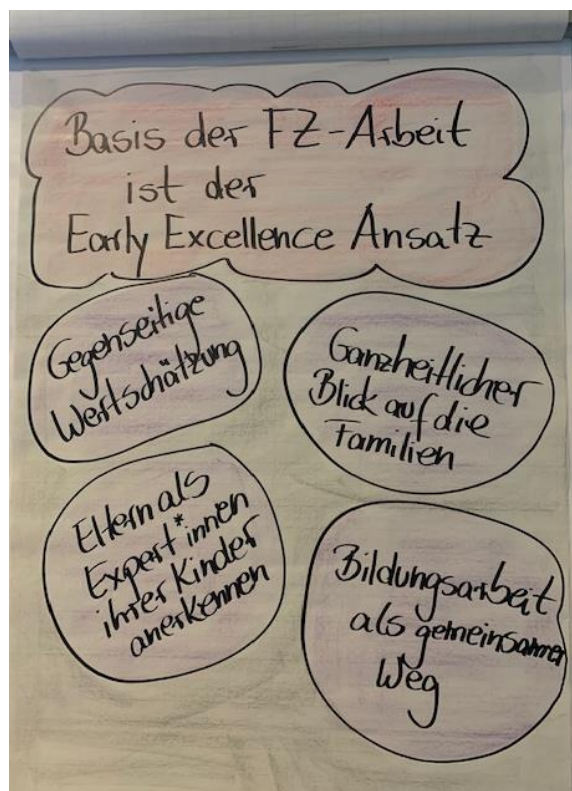 Basis der FZ-Arbeit
ist der
Early Excellence Ansatz
Gegenseitige
Wertschätzung
Ganzheitlicher
Blick auf die
Familien
Eltern als
Expert*innen
ihrer Kinder
anerkennen
Bildungsarbeit
als gemeinsamer
Weg